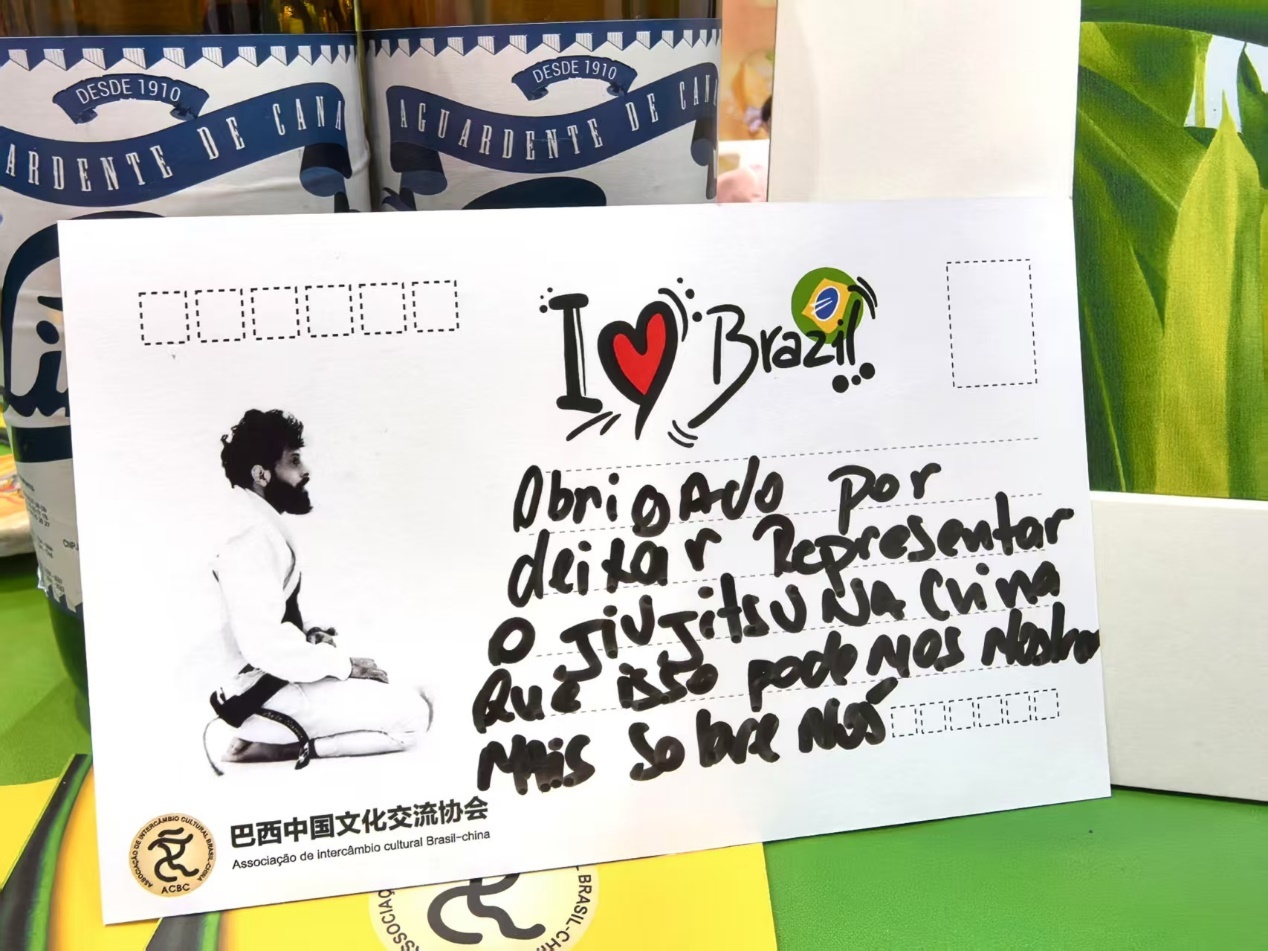 DESDE 1910
ARDENTE DE CANA
DESDE 1910
AGUARDENTE DE CAN
I Brazil!
ObrigAdo por
deixar Representar
o JiuJitsu NA China
Que isso podemos Mostra
MAis Sobre Nós
ASSOCIAÇÃO DE INTERCÂMBIO CULTURAL BRASIL-CHINA
ACBC
巴西中国文化交流协会
Associação de intercâmbio cultural Brasil-china
ASSOCIAÇ
BRASIL-CH